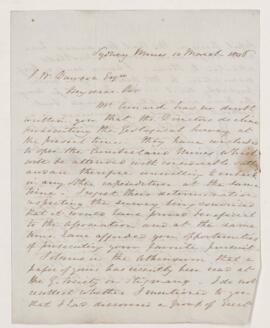 Sydney Mines 10 March 1846
J. W. Dawson Esqr
My dear Sir
Mr Cunard has no doubt
written you that the Directors decline
prosecuting the Geological Survey at
the present time. They have resolved
to open the Cumberland Mines which
will be attended with considerable outlay
and are therefore unwilling to embark
in any other expenditure at the same
time. I regret their determination
respecting the survey being convinced
that it would have proved beneficial
to the Association and at the same
time have afforded you opportunities
of prosecuting your favorite pursuit
I observe in the Athenaeum that a
paper of yours has recently been read at
the G. Society on Stigmaria. I do not
recollect whether I mentioned to you
that I had discovered a group of erect